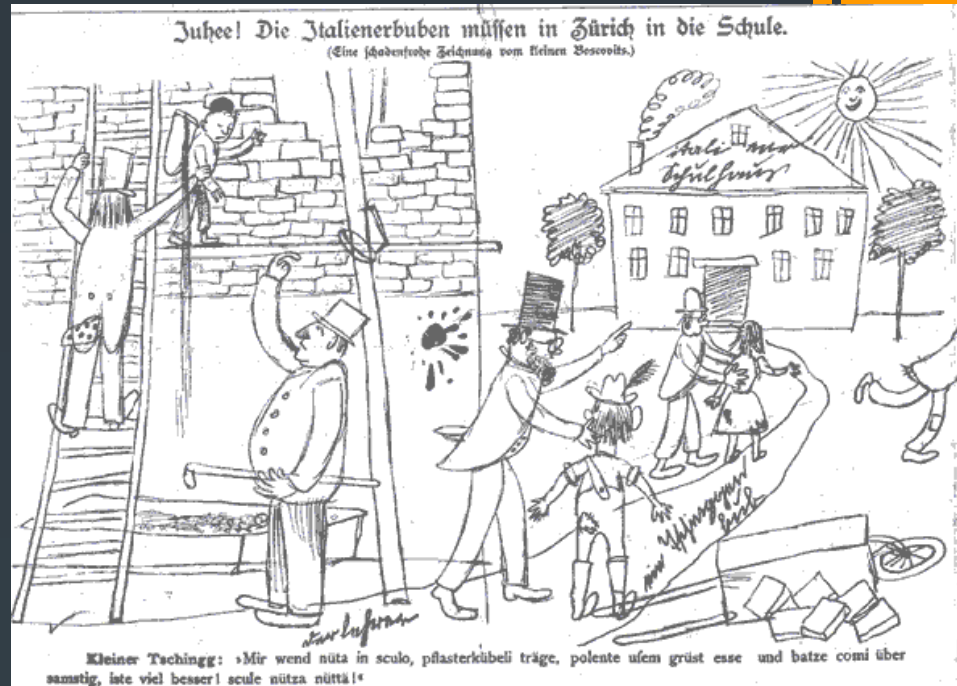 Juhee! Die Italienerbuben müssen in Zürich in die Schule.
(Eine schadenfrohe Zeichnung vom kleinen Boscovits.)
itali ener
Schulhaus
der Lehrer
ein
Kleiner Tschingg: »Mir wend nüta in sculo, pflasterkübeli träge, polente ufem grüst esse und batze comi über
samstig, iste viel besser! scule nütza nüttä!«